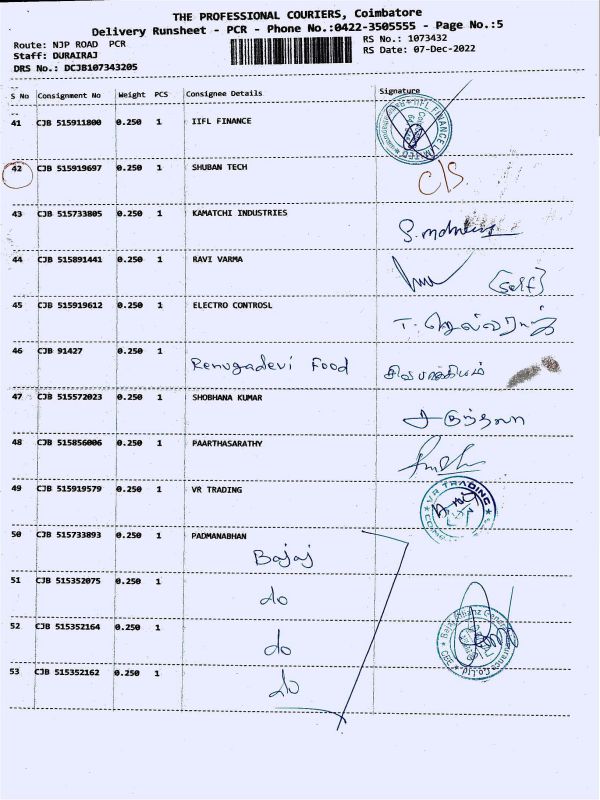 THE PROFESSIONAL COURIERS, Coimbatore
Delivery Runsheet - PCR - Phone No.:0422-3505555 - Page No.:5
Route: NJP ROAD PCR
Staff: DURAIRAJ
DRS No.: DCJB107343205
RS No.: 1073432
RS Date: 07-Dec-2022
S No Consignment No Weight PCS Consignee Details Signature
41 CJB 515911800 0.250 1 IIFL FINANCE
42 CJB 515919697 0.250 1 SHUBAN TECH C/S.
43 CJB 515733805 0.250 1 KAMATCHI INDUSTRIES
44 CJB 515891441 0.250 1 RAVI VARMA [Self]
45 CJB 515919612 0.250 1 ELECTRO CONTROSL
46 CJB 91427 0.250 1 Renugadevi Food
47 CJB 515572023 0.250 1 SHOBHANA KUMAR
48 CJB 515856006 0.250 1 PAARTHASARATHY
49 CJB 515919579 0.250 1 VR TRADING VR TRADING
50 CJB 515733893 0.250 1 PADMANABHAN
Bajaj
51 CJB 515352075 0.250 1 do
52 CJB 515352164 0.250 1 do
53 CJB 515352162 0.250 1 do